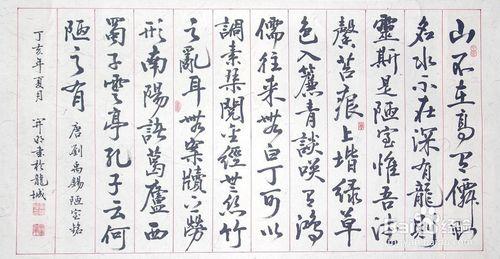 山不在高有僊則
名水不在深有龍則
靈斯是陋室惟吾德
馨苔痕上堦緑草
色入簾青談咲有鴻
儒往来無白丁可以
調素琴閲金經無絲竹
之亂耳無案牘之勞
形南陽諸葛廬西
蜀子雲亭孔子云何
陋之有 唐劉禹錫陋室銘
丁亥年夏月 書於龍城